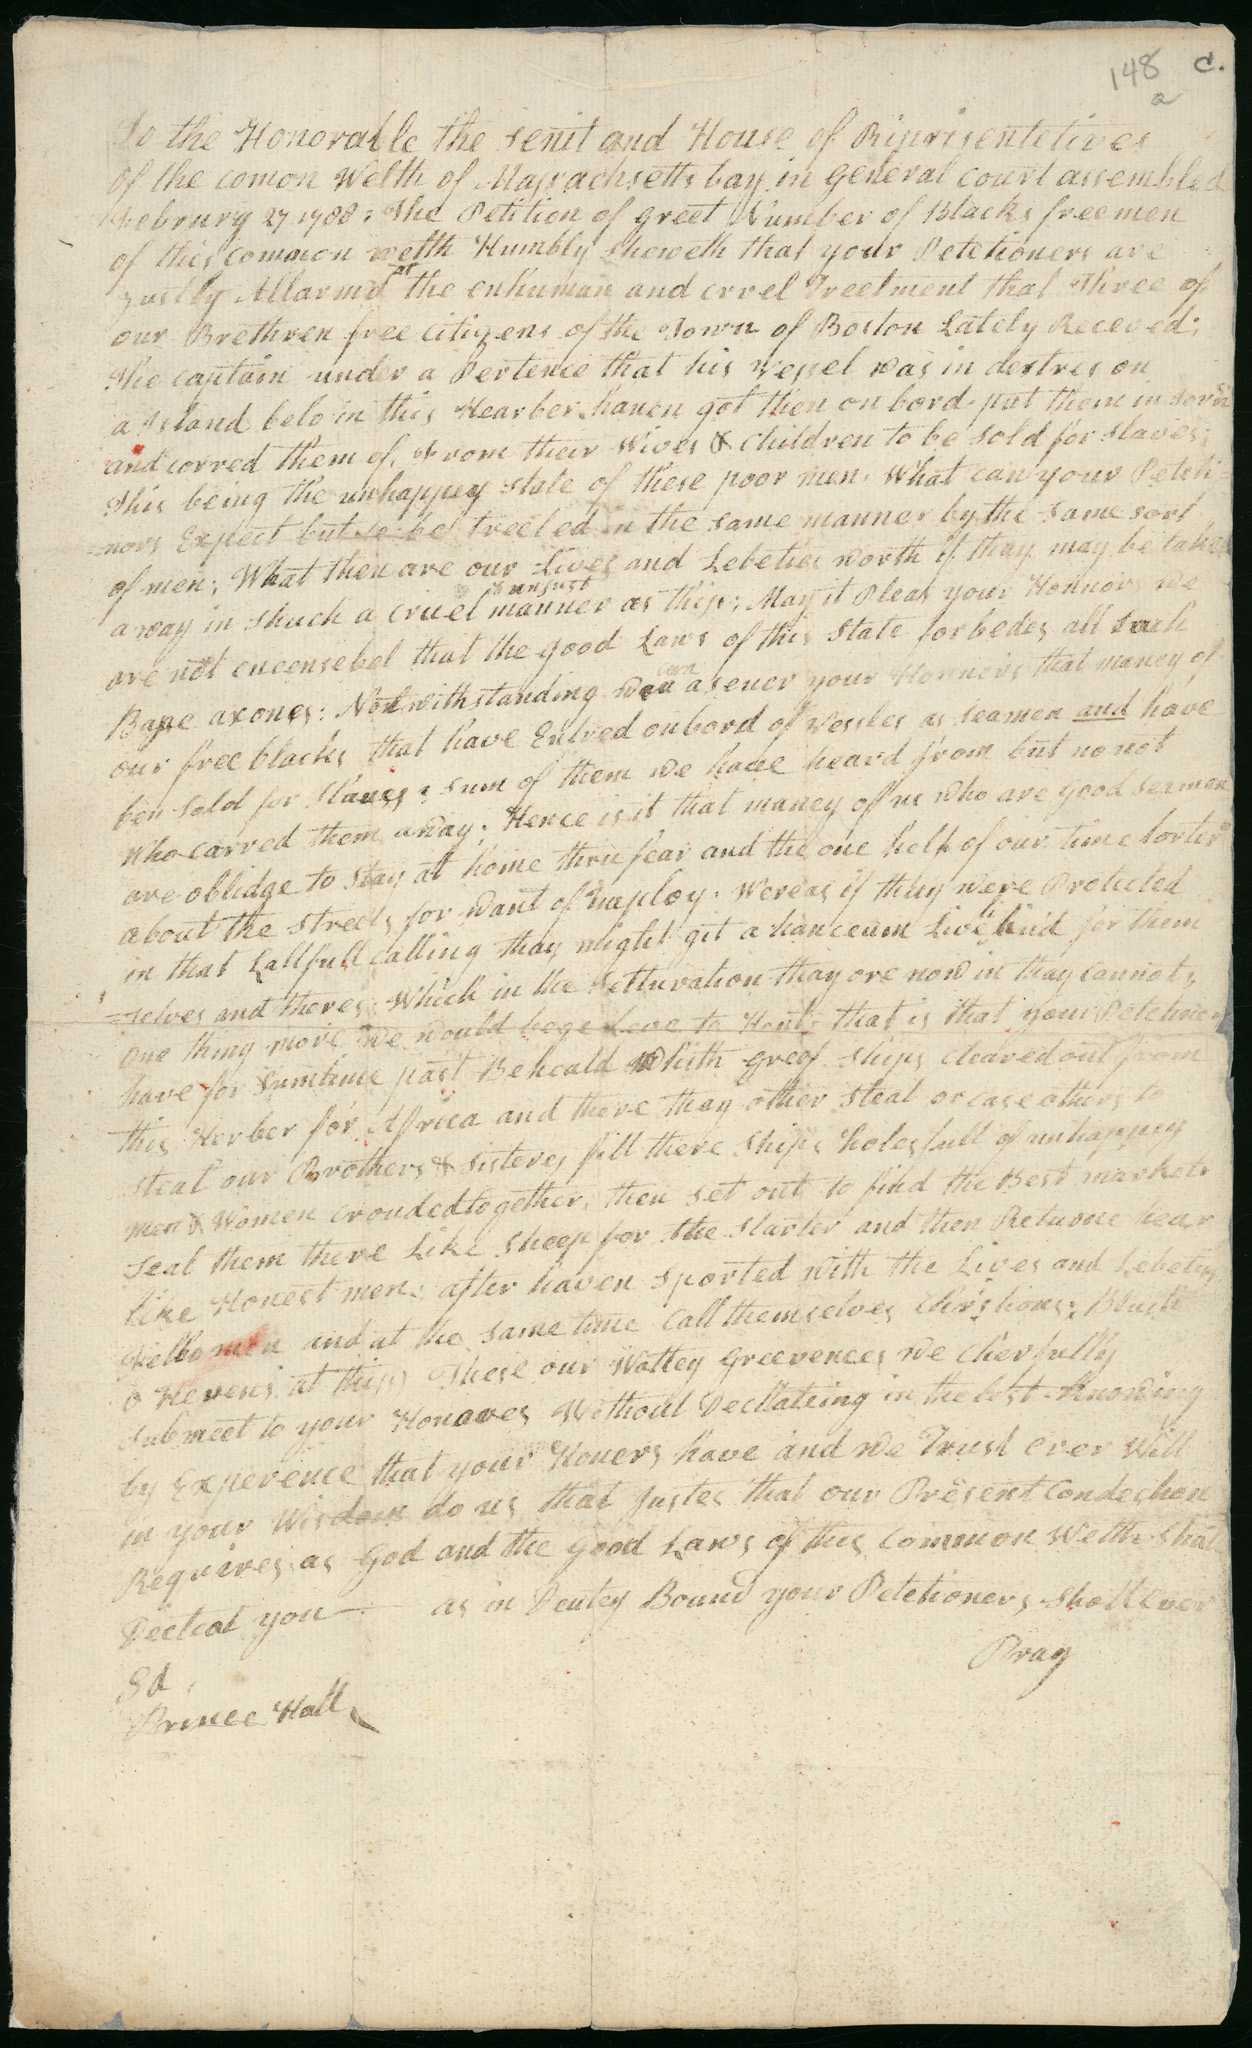 148 c.
a
To the Honorable the Senit and House of Riprisentetives
of the comon Welth of Massachsetts bay in general court assembled
February 27 1788: The Petition of greet Number of Blacks freemen
of this common welth Humbly sheweth that your Petetioners are
justly Allarmed at the enhuman and cruel Treetment that Three of
our Brethren free citizens of the Town of Boston lately Receved;
The captain under a Pertence that his vessel was in destres on
a Island belo in this Hearber haven got them on bord put them in
and corred them of, from their Wives & children to be sold for slaves;
This being the unhappey state of these poor men. What can your Peteti
=nors Expect but to be treeted in the same manner by the same sort
of men; What then are our lives and Lebeties worth if thay may be taken
away in shuch a cruel & unjust manner as this; May it Pleas your Honnors we
are not encensebel that the good Laws of this State forbedes all such
Base axones: Notwithstanding we can aseuer your Honners that maney of
our free blacks that have Entred onbord of vessles as seamen and have
ben sold for Slaves & sum of them we have heard from but no not
who carred them away; Hence is it that maney of us who are good seamen
are oblidge to stay at home thru fear and the one help of our time lorter
about the streets for want of Employ. Wereas if they were Protected
in that Lallfull calling thay might git a hanceum livehud for them
=selves and theres: Which in the setturation thay are now in thay cannot;
One thing more we would bege Leve to that is that your Petetiners
have for sumtime past Beheald whith greef ships cleared out from
this Herber for Africa and there thay other steal or case others to
steal our Brothers & sisters fill there ships holes full of unhappey
men & Women crouded together, then set out to find the Best markets
seal them there Like sheep for the slarter and then Returne hear
Like Honest men; after haven sported with the Lives and Lebeties
fellomen and at the same time call themselves christions: Blush
o Hevens at this, These our Wattey greevences we cherfully
submeet to your Honoores Without Decttateing in the lest knowing
by Experience that your Honers have and we Trust ever Will
in your Wisdom do us that Justes that our Present condechon
Requires as God and the good Laws of this common Welth shall
Dectat you — as in Deutey Bound your Petetioners shall ever
Pray
Sd
Prince Hall